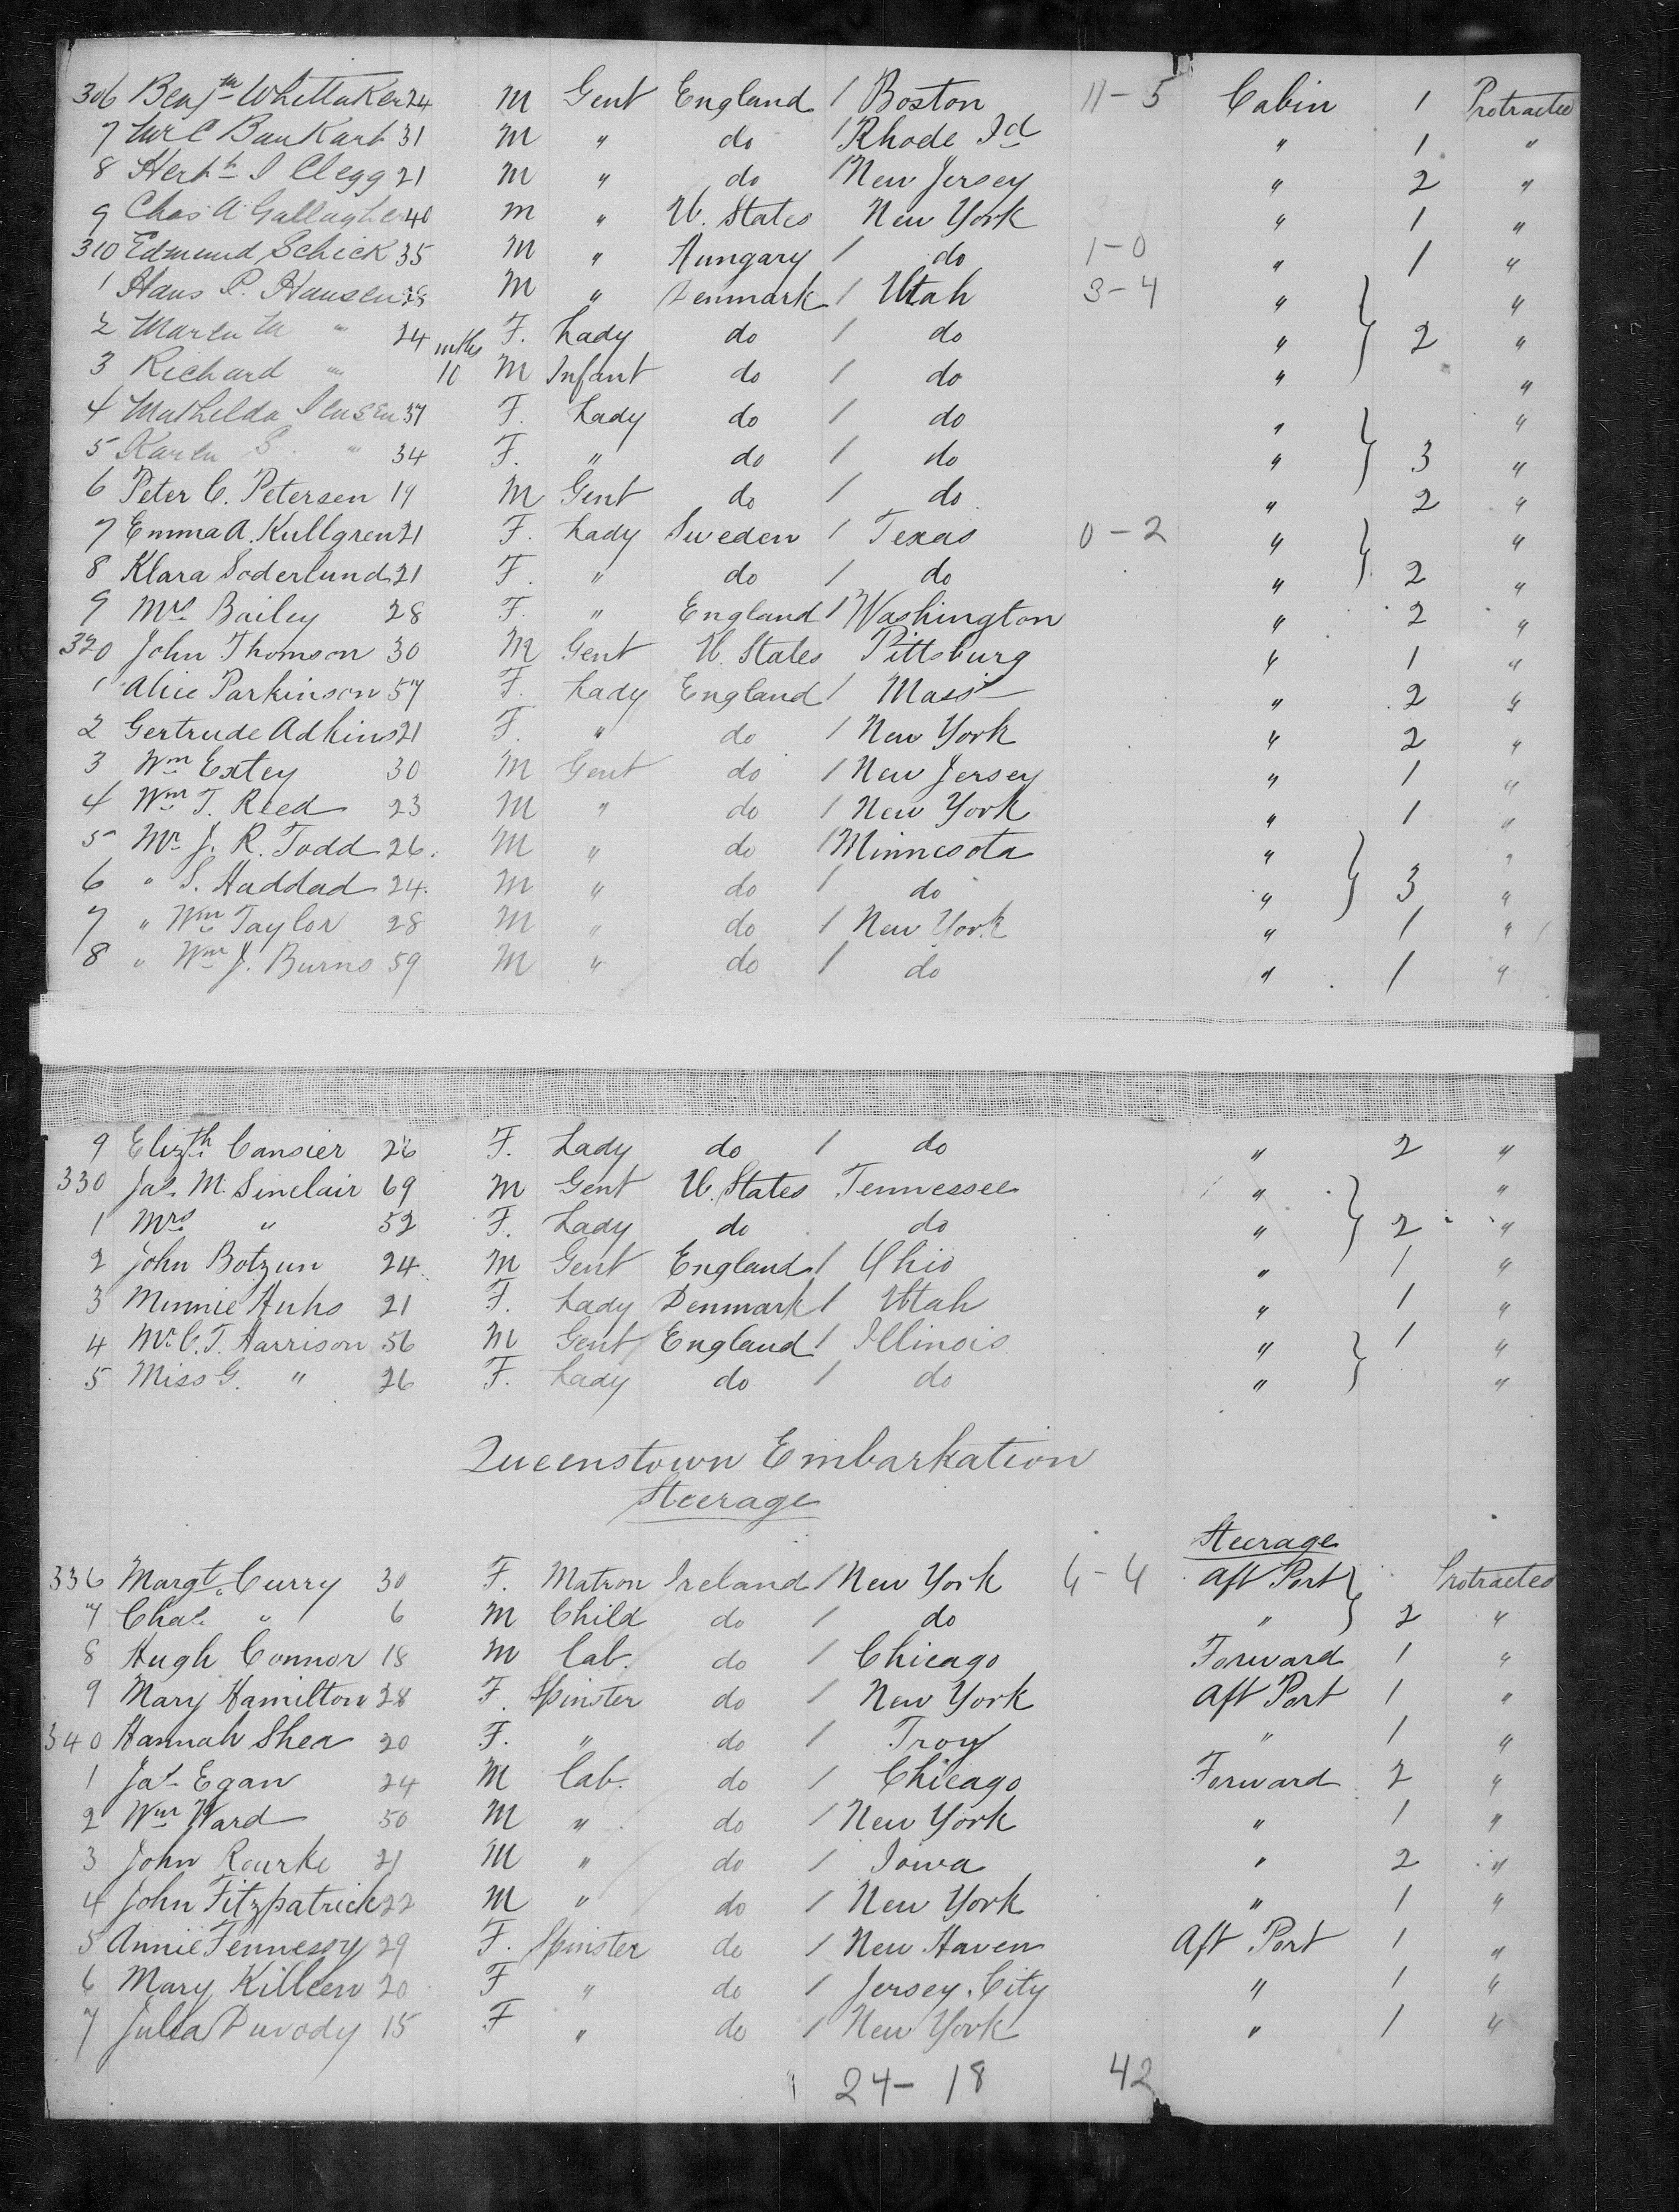 306 Benjm Whittaker 24 M Gent England 1 Boston 11-5 Cabin 1 Protracted
7 Mr C Bankart 31 M " do 1 Rhode Id " 1 "
8 Herbt Clegg 21 M " do 1 New Jersey " 2 "
9 Chas A Gallagher 40 M " U. States New York " 1 "
310 Edmund Schick 35 M " Hungary 1 do 1-0 " 1 "
1 Hans P. Hansen 28 M " Denmark 1 Utah 3-4 " "
2 Maren M " 24 F. Lady do 1 do " 2 "
3 Richard " mths 10 M Infant do 1 do " "
4 Mathilda Jensen 37 F. Lady do 1 do " "
5 Karen S. " 34 F. " do 1 do " 3 "
6 Peter C. Petersen 19 M Gent do 1 do " 2 "
7 Emma A. Kullgren 21 F. Lady Sweden 1 Texas 0-2 " "
8 Klara Soderlund 21 F. " do 1 do " 2 "
9 Mrs Bailey 28 F. " England 1 Washington " 2 "
320 John Thomson 30 M Gent U. States Pittsburg " 1 "
1 Alice Parkinson 57 F. Lady England 1 Mass " 2 "
2 Gertrude Adkins 21 F. " do 1 New York " 2 "
3 Wm Extey 30 M Gent do 1 New Jersey " 1 "
4 Wm T. Reed 23 M " do 1 New York " 1 "
5 Mr J. R. Todd 26. M " do 1 Minnesota " "
6 " S. Haddad 24. M " do 1 do " 3 "
7 " Wm Taylor 28 M " do 1 New York " 1 "
8 " Wm J. Burns 59 M " do 1 do " 1 "
9 Elizth Cansier 26 F. Lady do 1 do " 2 "
330 Jas M. Sinclair 69 M Gent U. States Tennessee " "
1 Mrs " 52 F. Lady do do " 2 "
2 John Botzun 24 M Gent England 1 Ohio " 1 "
3 Minnie Huhs 21 F. Lady Denmark 1 Utah " 1 "
4 Mr C. T. Harrison 56 M Gent England 1 Illinois " 1 "
5 Miss G. " 26 F. Lady do 1 do " "
Queenstown Embarkation
Steerage
Steerage
336 Margt Curry 30 F. Matron Ireland 1 New York 4-4 Aft Port Protracted
7 Chas " 6 M Child do 1 do " 2 "
8 Hugh Connor 18 M Lab. do 1 Chicago Forward 1 "
9 Mary Hamilton 28 F. Spinster do 1 New York Aft Port 1 "
340 Hannah Shea 20 F. " do 1 Troy " 1 "
1 Jas Egan 24 M Lab. do 1 Chicago Forward 2 "
2 Wm Ward 50 M " do 1 New York " 1 "
3 John Rourke 21 M " do 1 Iowa " 2 "
4 John Fitzpatrick 22 M " do 1 New York " 1 "
5 Annie Fennessy 29 F. Spinster do 1 New Haven Aft Port 1 "
6 Mary Killeen 20 F " do 1 Jersey City " 1 "
7 Julia Duvody 15 F " do 1 New York " 1 "
24-18 42